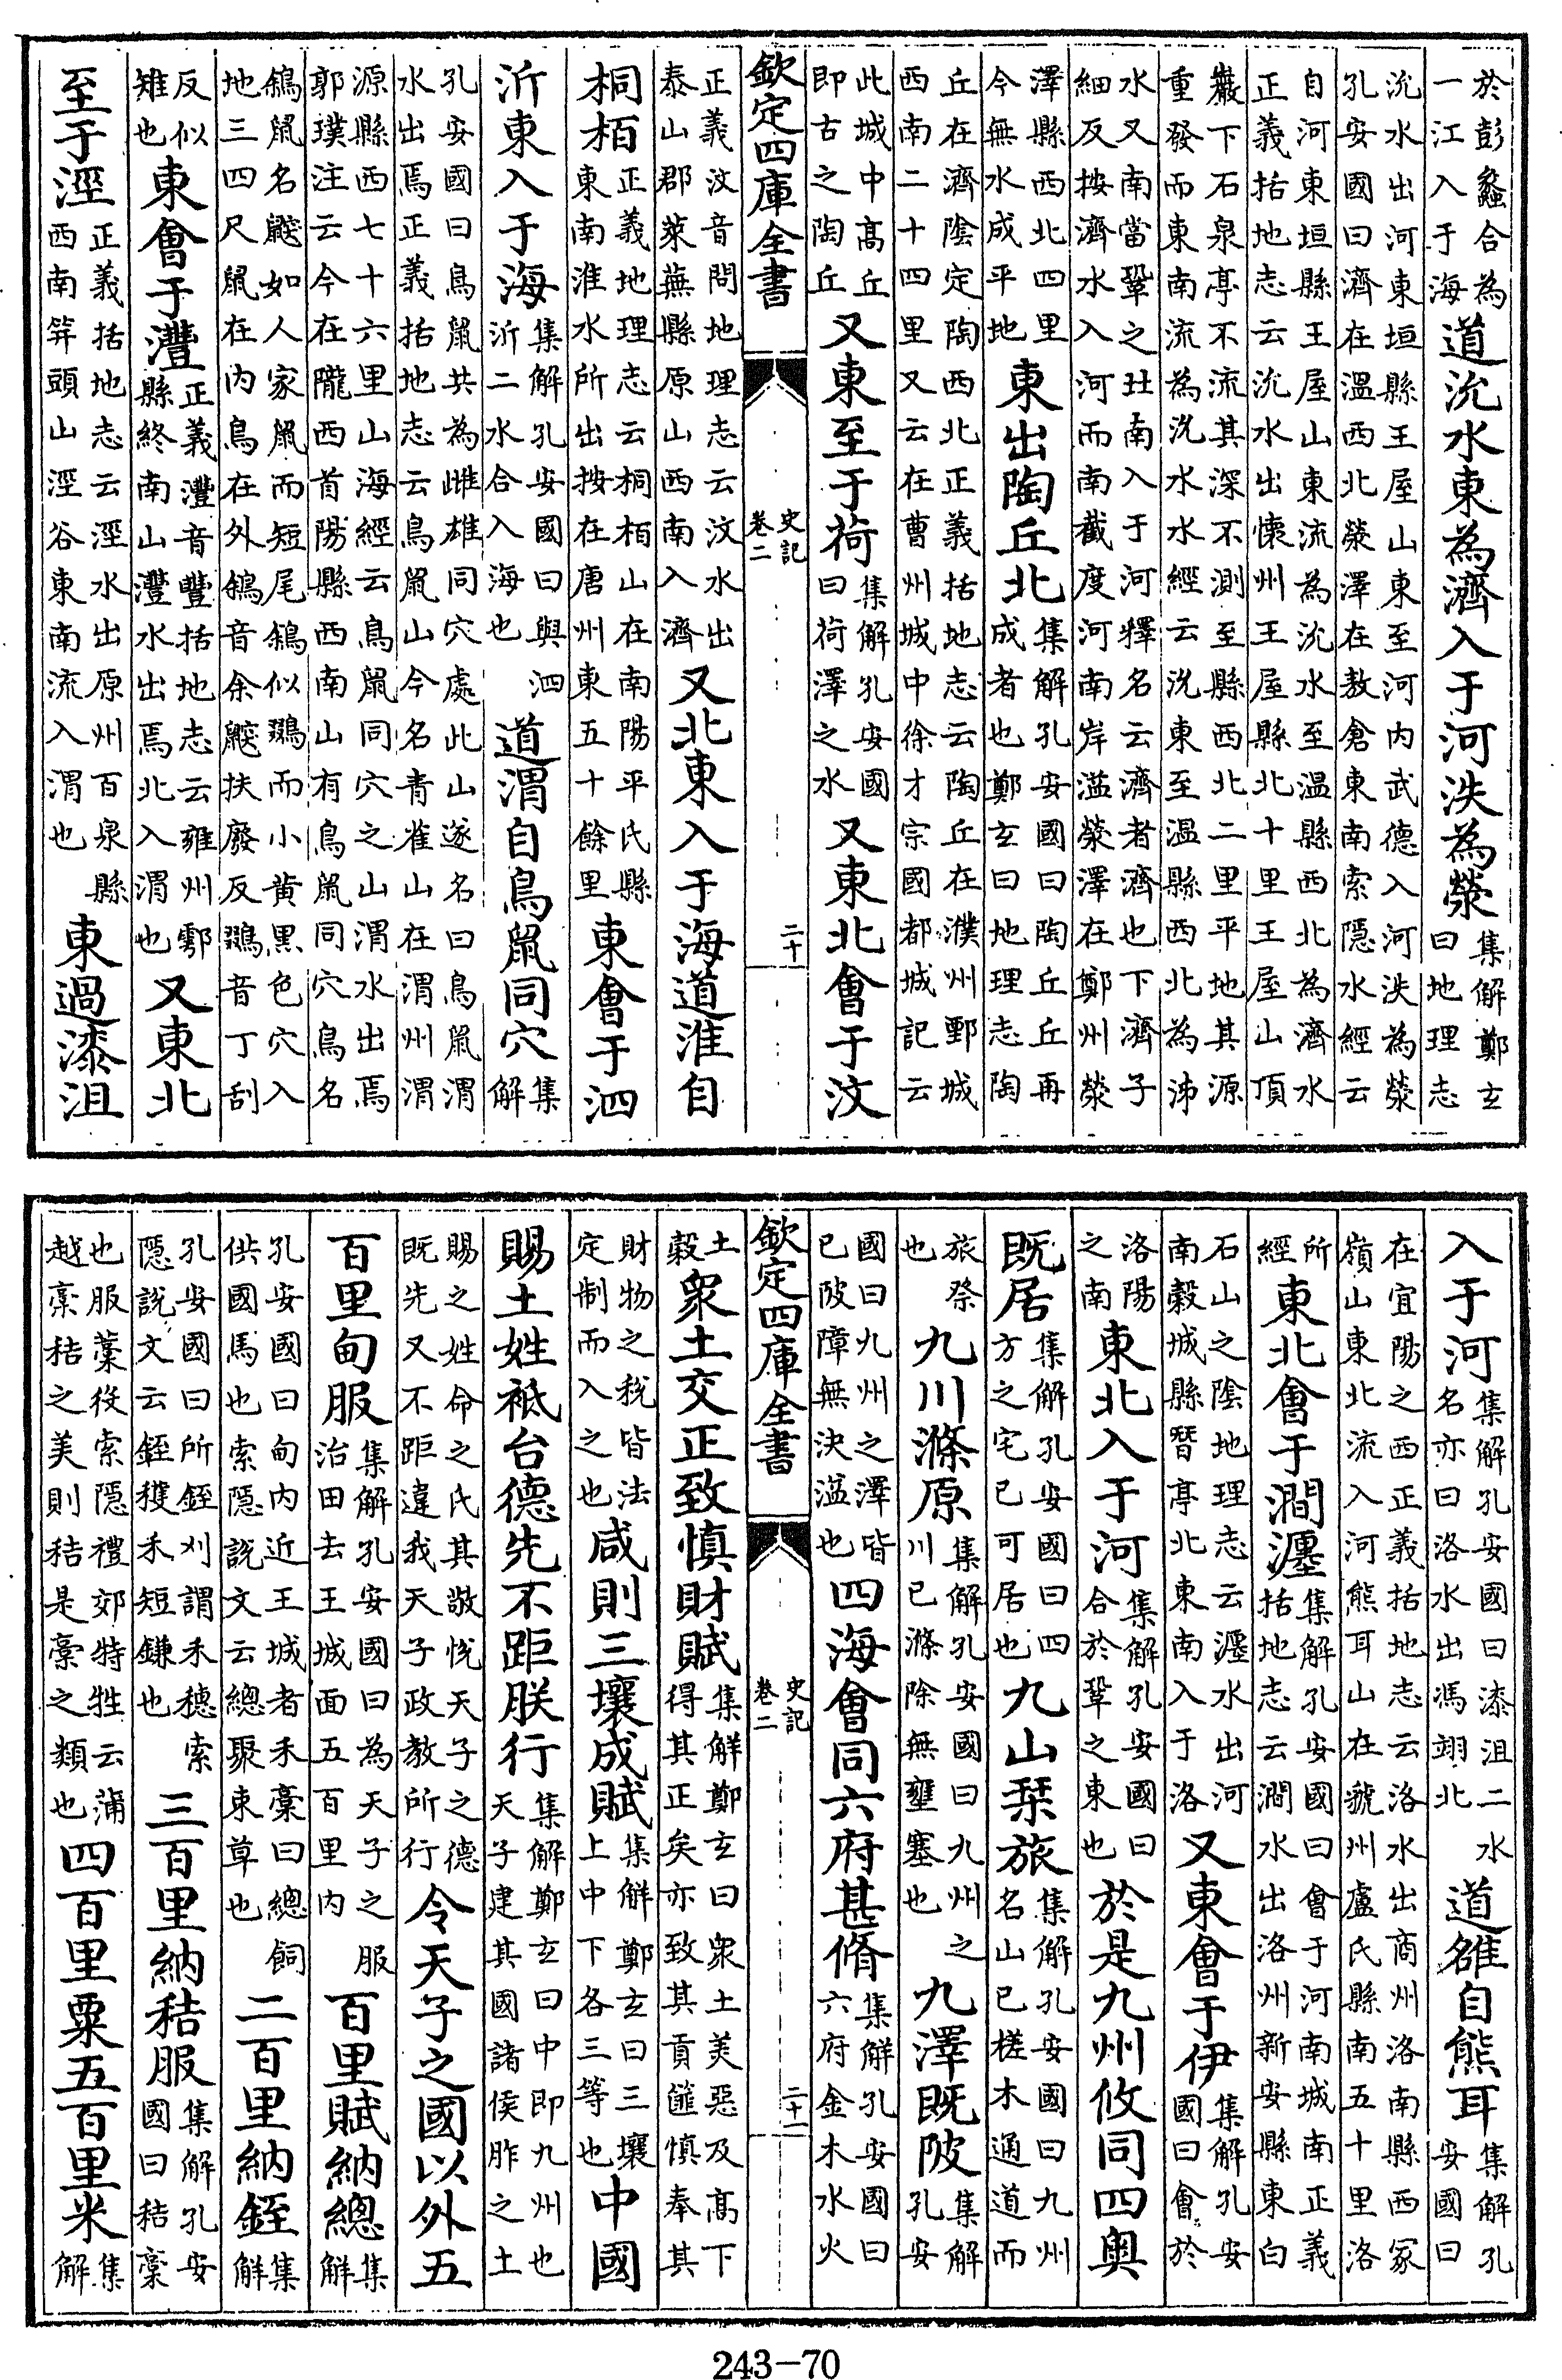 於彭蠡合為一江入于海道沇水東為濟入于河泆為滎集解鄭玄曰地理志
沇水出河東垣縣王屋山東至河内武德入河泆為滎
孔安國曰濟在溫西北滎澤在敖倉東南索隱水經云
自河東垣縣王屋山東流為沇水至温縣西北為濟水
正義括地志云沇水出懷州王屋縣北十里王屋山頂
巖下石泉亭不流其深不測至縣西北二里平地其源
重發而東南流為沇水水經云沇東至温縣西北為泲
水又南當鞏之北南入于河釋名云濟者濟也下濟子
細反按濟水入河而南截度河南岸溢滎澤在鄭州滎
澤縣西北四里今無水成平地東出陶丘北集解孔安國曰陶丘丘再成者也鄭玄曰地理志陶
丘在濟陰定陶西北正義括地志云陶丘在濮州鄄城
西南二十四里又云在曹州城中徐才宗國都城記云
此城中高丘即古之陶丘又東至于荷集解孔安國曰荷澤之水又東北會于汶
欽定四庫全書 史記 卷二 二十
正義汶音問地理志云汶水出泰山郡萊蕪縣原山西南入濟又北東入于海道淮自
桐栢正義地理志云桐栢山在南陽平氏縣東南淮水所出按在唐州東五十餘里東會于泗
沂東入于海集解孔安國曰與泗沂二水合入海也道渭自鳥鼠同穴集解
孔安國曰鳥鼠共為雌雄同穴處此山遂名曰鳥鼠渭
水出焉正義括地志云鳥鼠山今名青雀山在渭州渭
源縣西七十六里山海經云鳥鼠同穴之山渭水出焉
郭璞注云今在隴西首陽縣西南山有鳥鼠同穴鳥名
鵌鼠名鼵如人家鼠而短尾鵌似鵽而小黄黑色穴入
地三四尺鼠在内鳥在外鵌音余鼵扶廢反鵽音丁刮
反似雉也東會于灃正義灃音豐括地志云雍州鄠縣終南山灃水出焉北入渭也又東北
至于涇正義括地志云涇水出原州百泉縣西南笄頭山涇谷東南流入渭也東過漆沮
入于河集解孔安國曰漆沮二水名亦曰洛水出馮翊北道雒自熊耳集解孔安國曰
在宜陽之西正義括地志云洛水出商州洛南縣西冢
嶺山東北流入河熊耳山在虢州盧氏縣南五十里洛
所經東北會于澗瀍集解孔安國曰會于河南城南正義括地志云澗水出洛州新安縣東白
石山之陰地理志云瀍水出河南穀城縣朁亭北東南入于洛又東會于伊集解孔安國曰會於
洛陽之南東北入于河集解孔安國曰合於鞏之東也於是九州攸同四奥
既居集解孔安國曰四方之宅已可居也九山栞旅集解孔安國曰九州名山已槎木通道而
旅祭也九川滌原集解孔安國曰九州之川已滌除無壅塞也九澤既陂集解孔安
國曰九州之澤皆已陂障無決溢也四海會同六府甚脩集解孔安國曰六府金木水火
欽定四庫全書 史記 卷二 二十一
土穀衆土交正致慎財賦集解鄭玄曰衆土美惡及高下得其正矣亦致其貢篚慎奉其
財物之税皆法定制而入之也咸則三壤成賦集解鄭玄曰三壤上中下各三等也中國
賜土姓祗台德先不距朕行集解鄭玄曰中即九州也天子建其國諸侯胙之土
賜之姓命之氏其敬悦天子之德既先又不距違我天子政教所行令天子之國以外五
百里甸服集解孔安國曰為天子之服治田去王城面五百里内百里賦納總集解
孔安國曰甸内近王城者禾稾曰總飼供國馬也索隱説文云總聚束草也二百里納銍集解
孔安國曰所銍刈謂禾穗索隱説文云銍穫禾短鎌也三百里納秸服集解孔安國曰秸稾
也服藳役索隱禮郊特牲云蒲越稾秸之美則秸是稾之類也四百里粟五百里米集解
243-70